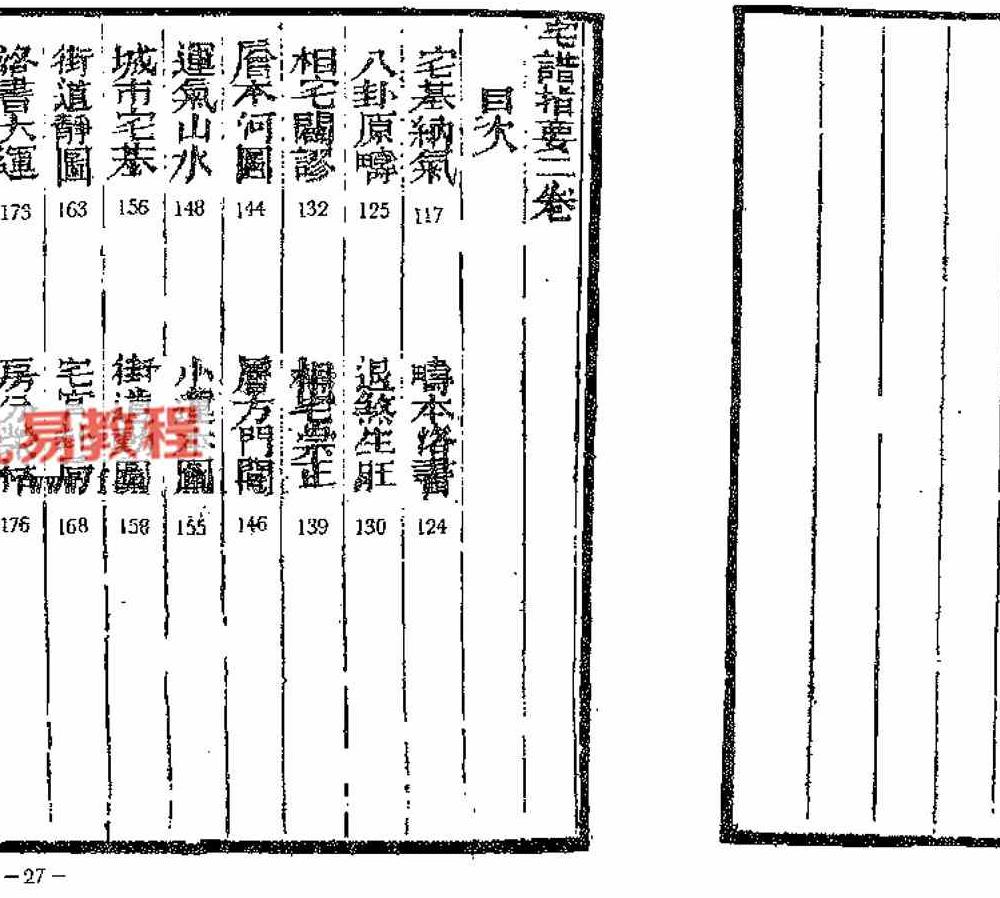 宅譜指要二卷
目次
宅基納氣 117
疇本洛書 124
八卦原疇 125
退煞生旺 130
相宅闢謬 132
相宅崇正 139
層本河圖 144
層方門間 146
運氣山水 148
小運 圖 155
城市宅基 156
街道 圖 158
街道靜圖 163
宅 局 168
洛書大運 173
房 176
易教程
－27－